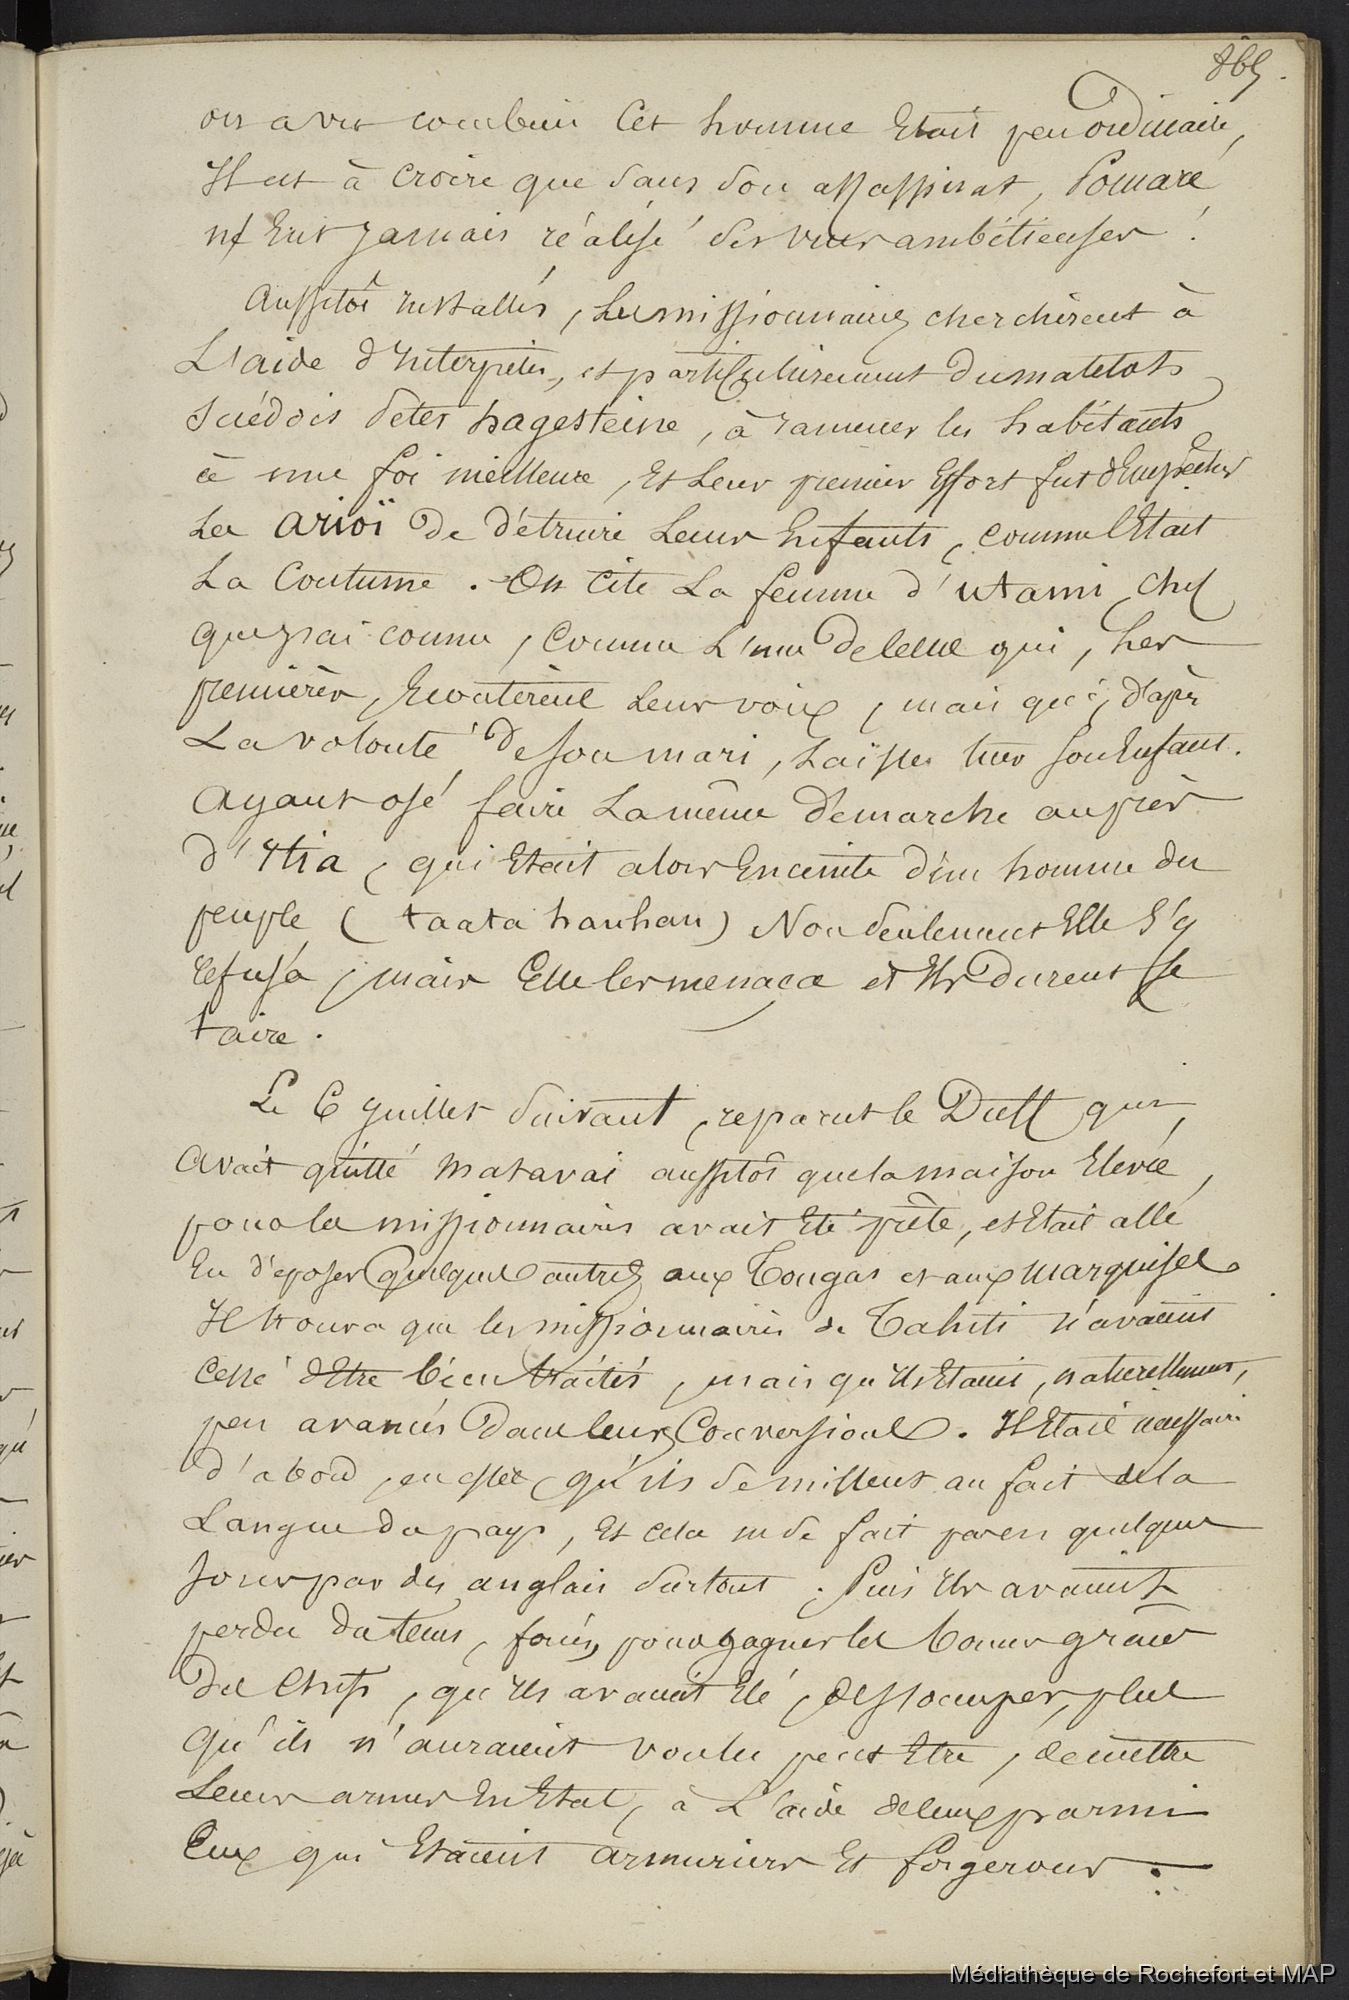 865.
on a vu combien cet homme Etait peu ordinaire,
Il est à croire que sans son assassinat, Pomaré
n'eut jamais réalisé ses vues ambitieuses !
Aussitôt installés, les missionnaires cherchèrent à
L'aide d'interprètes, et particulièrement du matelots
suédois Peter hagesteine, à ramener les habitants
à une foi meilleure, Et Leur premier Effort fut d'Empêcher
Les arioï De détruire Leurs Enfants, comme c'Etait
La Coutume. On Cite La femme d'utami, chef
que j'ai connu, comme L'une De celles qui, les
premières, Ecoutèrent Leur voix, mais qui, d'après
La volonté De son mari, Laissa tuer son Enfant.
Ayant osé faire La même démarche auprès
d'Itia, qui Etait alors Enceinte d'un homme du
peuple (taata hauhau) Non seulement Elle s'y
refusa, mais Elle les menaça et Ils Durent se
taire.
Le 6 juillet suivant, reparut le Duff qui,
avait quitté matavai aussitôt que la maison Elevée,
pour les missionnaires avait Eté prête, et Etait allé
En déposer quelques autres aux Tongas et aux marquises.
Il trouva que les missionnaires de Tahiti n'avaient
cessé d'Etre bien traités, mais qu'Ils Etaient, naturellement,
peu avancés Dans leurs Conversions. Il Etait nécessaire
d'abord, en effet, qu'ils se missent au fait de la
Langue du pays, Et cela ne se fait pas en quelques
jours par des anglais surtout. Puis Ils avaient
perdu du tems, forcés, pour gagner les bonnes grâces
des Chefs, qu'Ils avaient Eté, de s'occuper, plus
qu'ils n'auraient voulu peut Etre, de mettre
Leurs armes En Etat, à L'aide de ceux parmi
Eux qui Etaient armuriers Et forgerons.
Médiathèque de Rochefort et MAP